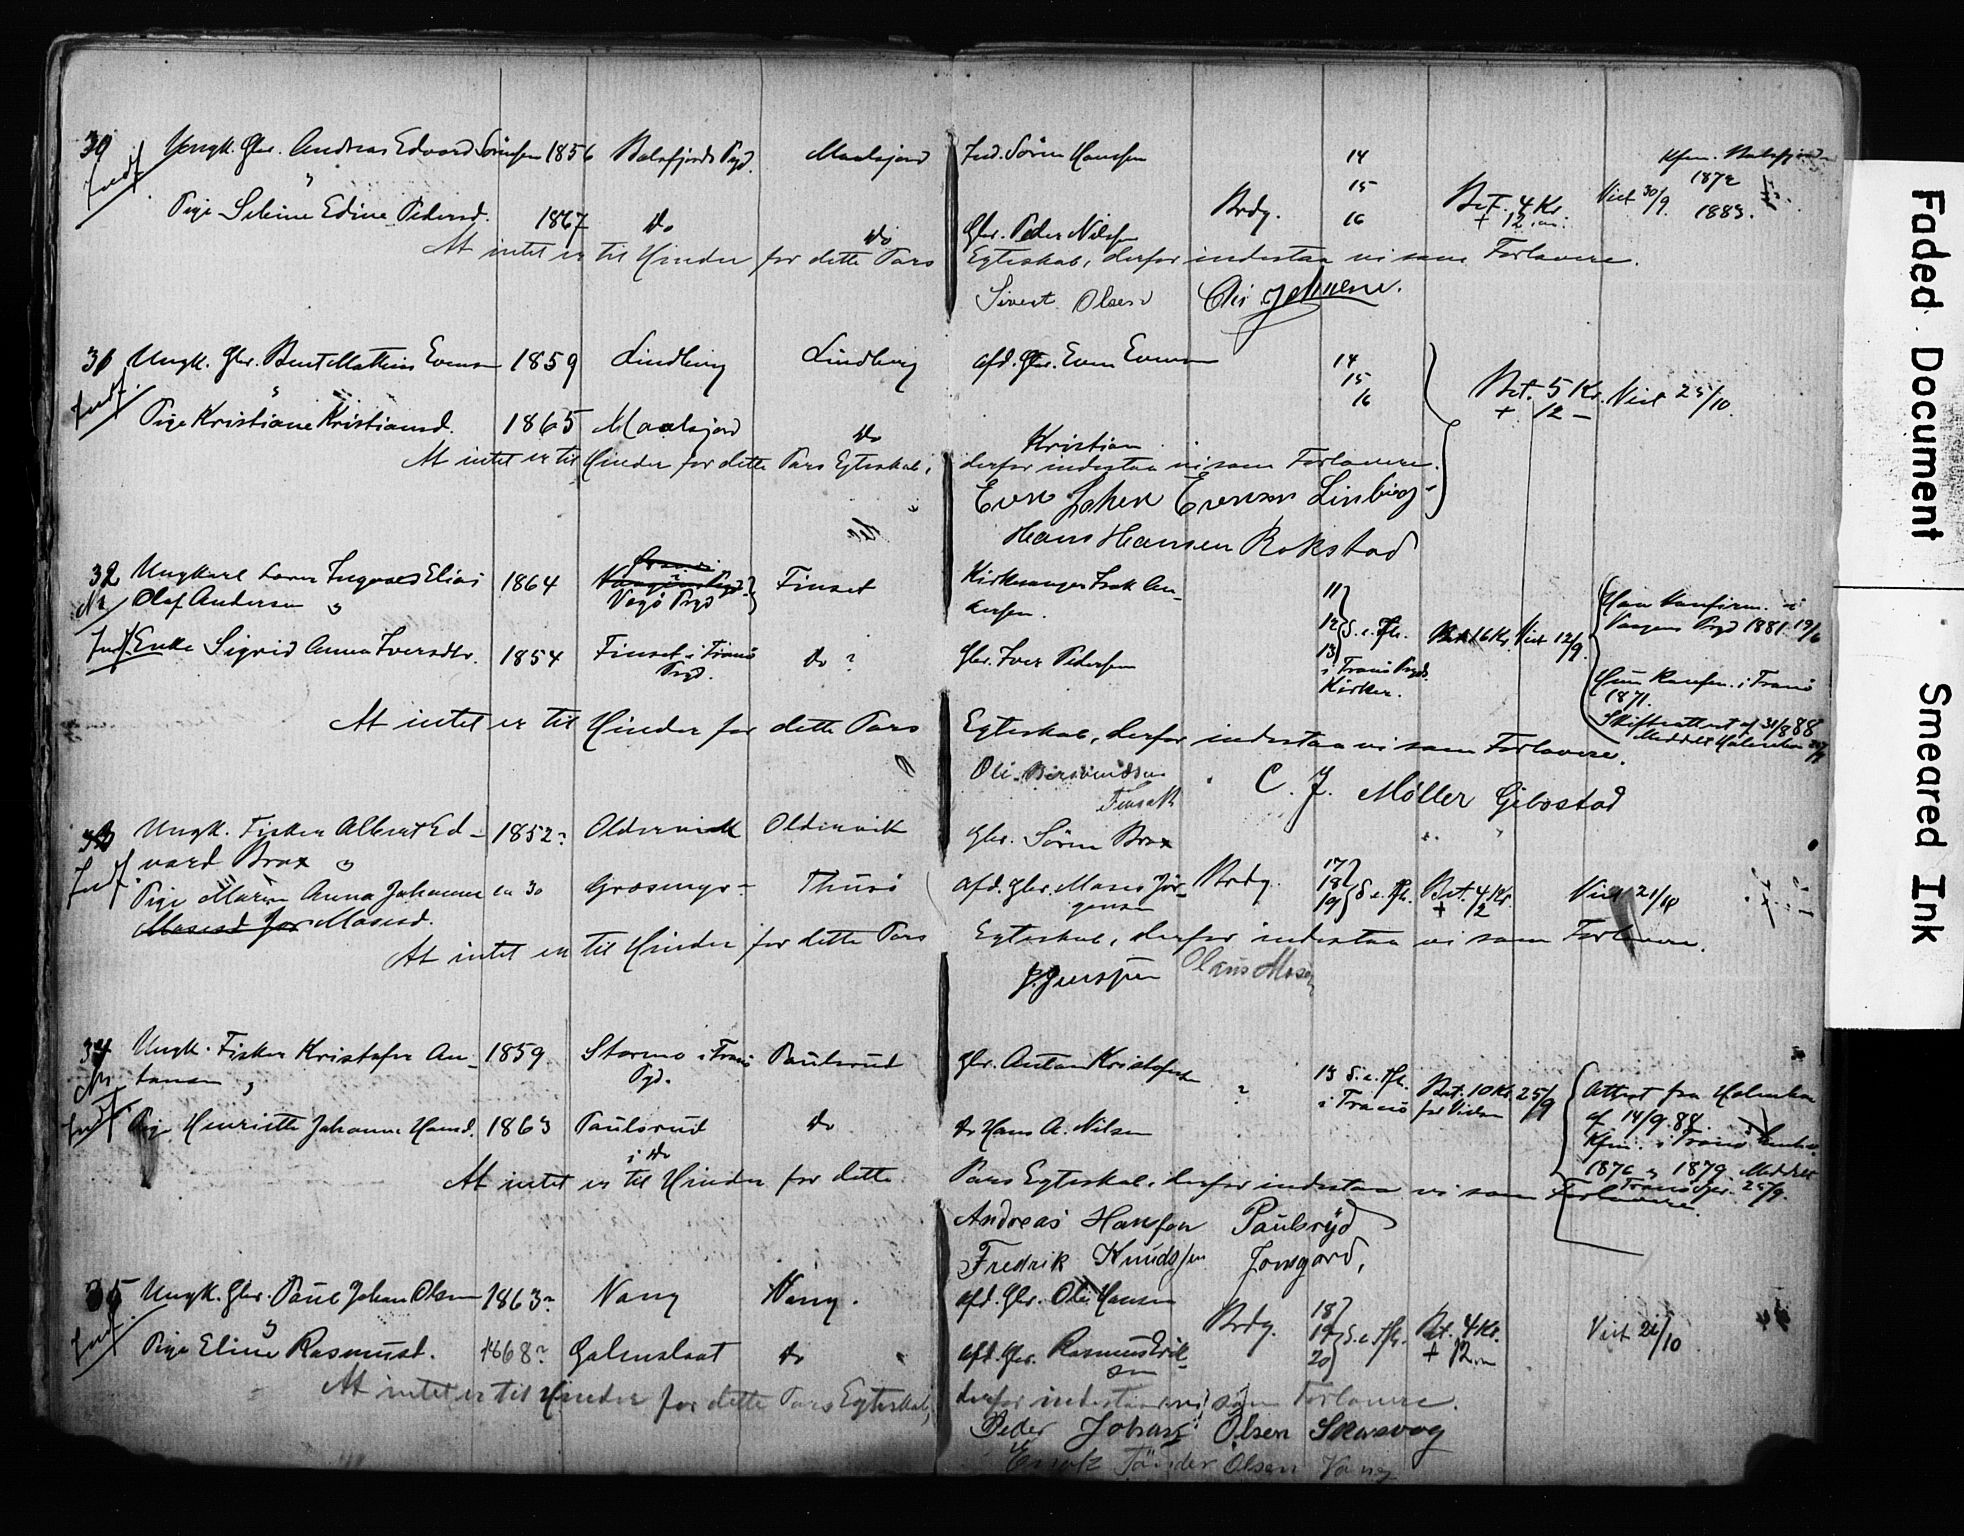 30 Ungk. Gbr. Andreas Edvard Sörensen 1856 Balsfjords Pgd. Maalsjord Ind. Sören Hansen 14 Kfm. Balsfjorden
Indf. 15 1872
Pige Seline Edine Pedersd. 1867 do do Gbr. Peder Nilsen Brdg. 16 Bet. 4 Kr. + 12 Viet 30/9. 1883.
At intet er til Hinder for dette Pars Egteskab, derfor indestaa vi som Forlovere.
Sivert Olsen Chr. Johnsen.
31 Ungk. Gbr. Bent Mathias Evensen 1859 Lindberg Lindberg afd. Gbr. Even Evensen 14
Indf. 15
16 Bet. 5 Kr. Viet 25/10.
+ 12 —
Pige Kristiane Kristiansd. 1865 Maalsjord do Kristian
At intet er til Hinder for dette Pars Egteskab, derfor indestaa vi som Forlovere.
Even Johan Evensen Linberg
Hans Hansen Rokstad
32 Ungkarl Lærer Ingvald Elias 1864 Finset Kirkesanger Isak An- 11
Olaf Andersen Vegö Pgd dersen. 12 S. e. Tfh. 16 Kr. Viet 12/9.
Han konfirm. i
Vaagens Pgd 1881 19/6
Indf. Enke Sigrid Anna Iversdtr. 1854 Finset i Tranö Pgd. do ? Gbr. Iver Pedersen 13
i Tranö Pgds. Kirker.
Hun konfm. i Tranö
1871.
Skifteattest af 31/8 88
At intet er til Hinder for dette Pars Egteskab, derfor indestaa vi som Forlovere.
Ole
Finsæth C. J. Møller Gibostad
33 Ungk. Fisker Albert Ed- 1852? Oldervik Oldervik Gbr. Sören Brox
vard Brox
Indf. 17
Pige Maren Anna Johanna 30 Græsmyr- Thusö afd. Gbr. Moses Jör- Brdg. 18 S. e. Tfh. Bet. 4 Kr. Viet 21/10
Mosesd. gensen 19 + 12
At intet er til Hinder for dette Pars Egteskab, derfor indestaa vi som Forlovere.
J. Jenssen Olaus Mosesen
34 Ungk. Fisker Kristofer An- 1859 Stormo i Tranö Paulsrud Gbr. Anton Kristofersen 13 S. e. Tfh. Bet. 10 Kr. 25/9
tonsen Pgd. ? i Tranö for Vielsen
Attest fra
af 14/9 88.
Kfm. i Tranö
Indf. Pige Henriette Johanna Hansd. 1863 Paulsrud do do Hans A. Nilsen
i do
1876 1879
At intet er til Hinder for dette Pars Egteskab, derfor indestaa vi som Forlovere.
Andreas Hansen Paulsryd
Fredrik Knudssen Jonsgard,
35 Ungk. Gbr. Paul Johan Olsen 1863? Vang Vang. afd. Gbr. Ole Hansen 18
Indf. Brdg. 19 S. e. Tfh. Bet. 4 Kr. Viet 21/10
Pige Eline Rasmusd. 1868? Galenslaat do afd. Gbr. Rasmus Erik- 20 + 12
sen
At intet er til Hinder for dette Pars Egteskab, derfor indestaa vi som Forlovere.
Peder Johan Olsen Skarsvog
Enok Tönder Olsen Vang
Faded Document
Smeared Ink